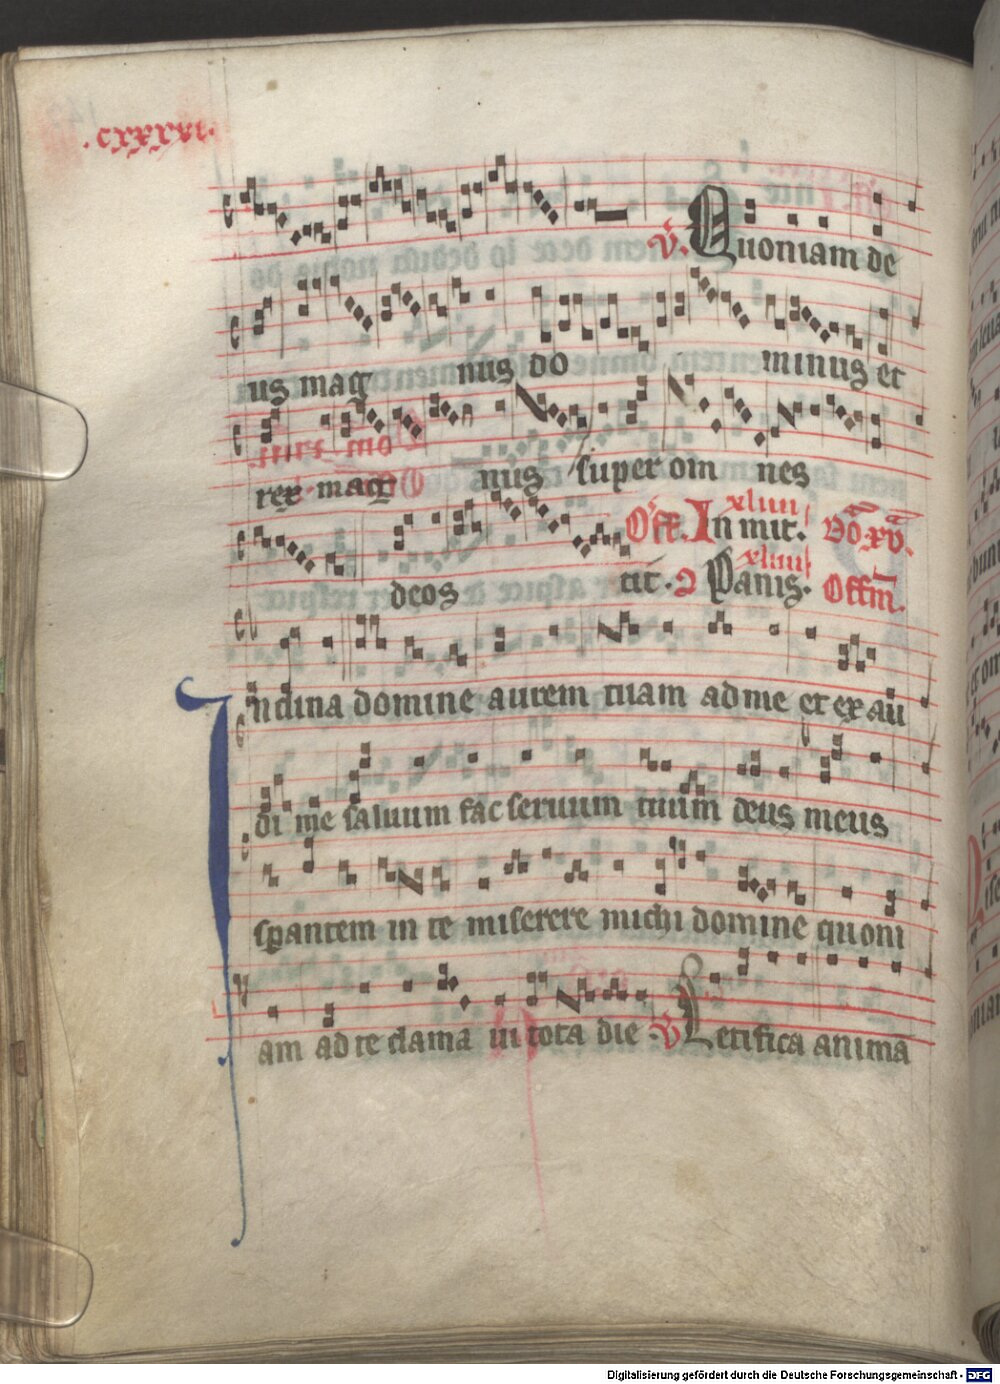 .cxxxvi.
v. Quoniam de
us mag nus do minus et
rex mag nus super om nes
Off. In mit. xliiii Dō. xv.
deos cit. Panis. xliiii Offm.
Inclina domine aurem tuam ad me et ex au
di me saluum fac seruum tuum deus meus
sperantem in te miserere michi domine quoni
am ad te clama ui tota die v Letifica anima
Digitalisierung gefördert durch die Deutsche Forschungsgemeinschaft - DFG